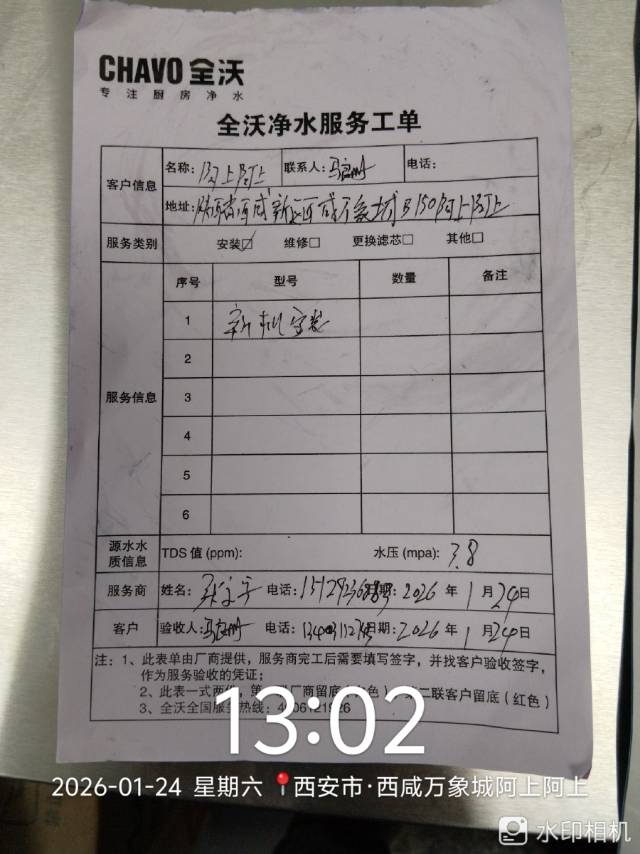 CHAVO 全沃
专注厨房净水
全沃净水服务工单
客户信息 名称: 阿上阿上 联系人: 电话:
地址: 陕西省西咸新区西咸万象城B150阿上阿上
服务类别 安装☑ 维修□ 更换滤芯□ 其他□
服务信息 序号 型号 数量 备注
1 新机安装
2
3
4
5
6
源水水质信息 TDS 值 (ppm): 水压 (mpa): 3.8
服务商 姓名: 电话: 日期: 2026 年 1 月 24 日
客户 验收人: 电话: 日期: 2026 年 1 月 24 日
注: 1、此表单由厂商提供，服务商完工后需要填写签字，并找客户验收签字，
作为服务验收的凭证；
2、此表一式两份，第一联厂商留底（色）第二联客户留底（红色）
3、全沃全国服务热线: 4006121926
13:02
2026-01-24 星期六 西安市·西咸万象城阿上阿上
水印相机